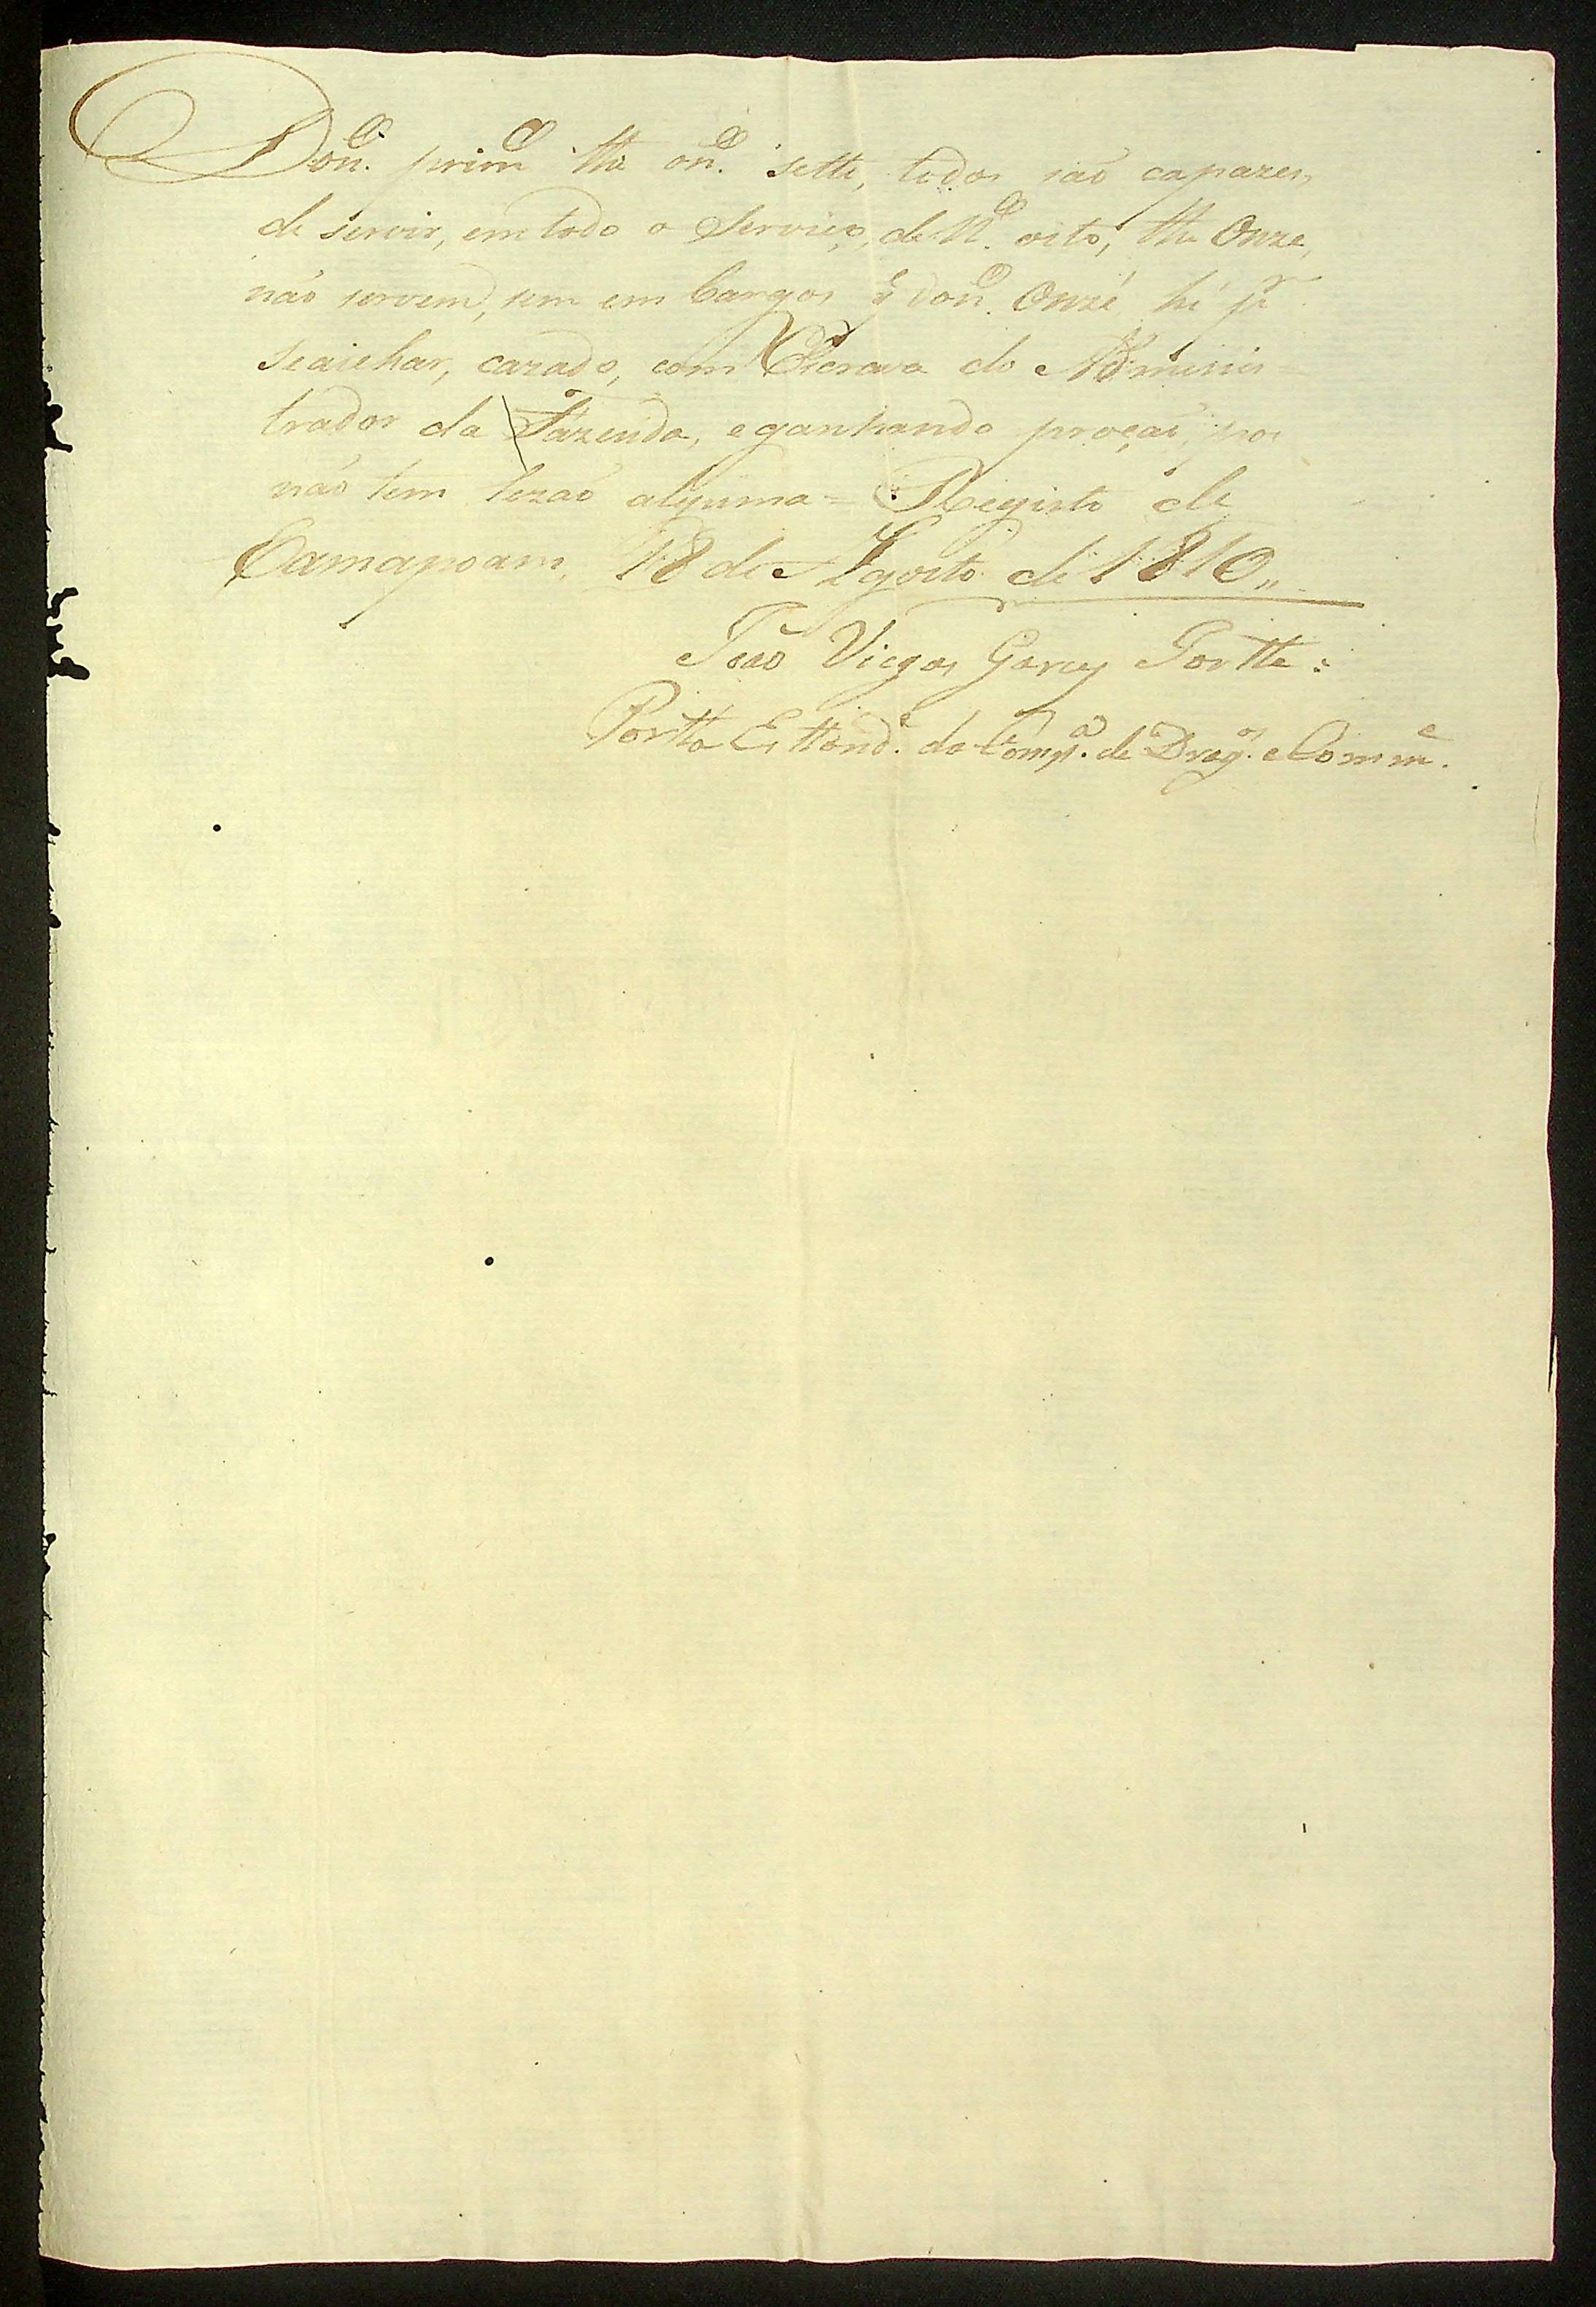 Do n.º prim.º the o n.º sette, todos saó capazes,
de servir, em todo o Serviço, de N.º oito, the Onze,
náo servem, sem em bargos q̃ do n.º Onze hé p.r
se aiehar, cazado, com Escrava do Adminis=
trador da Fazenda, e ganhando proçaó, pois
náo tem lezaó alguma = Registo de
Camapoam, 18 de Agosto de 1810,,
Joaó Viegas Garcez Fortte:
Portta Esttand.e da Comp.a de Drag.os e Comm.e